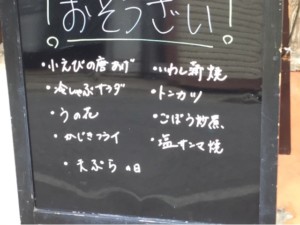 おそうざい!
・小えびの唐あげ
・冷しゃぶサラダ
・うの花
・かじきフライ
・天ぷら
・いわし蒲焼
・トンカツ
・ごぼう炒煮
・塩サンマ焼